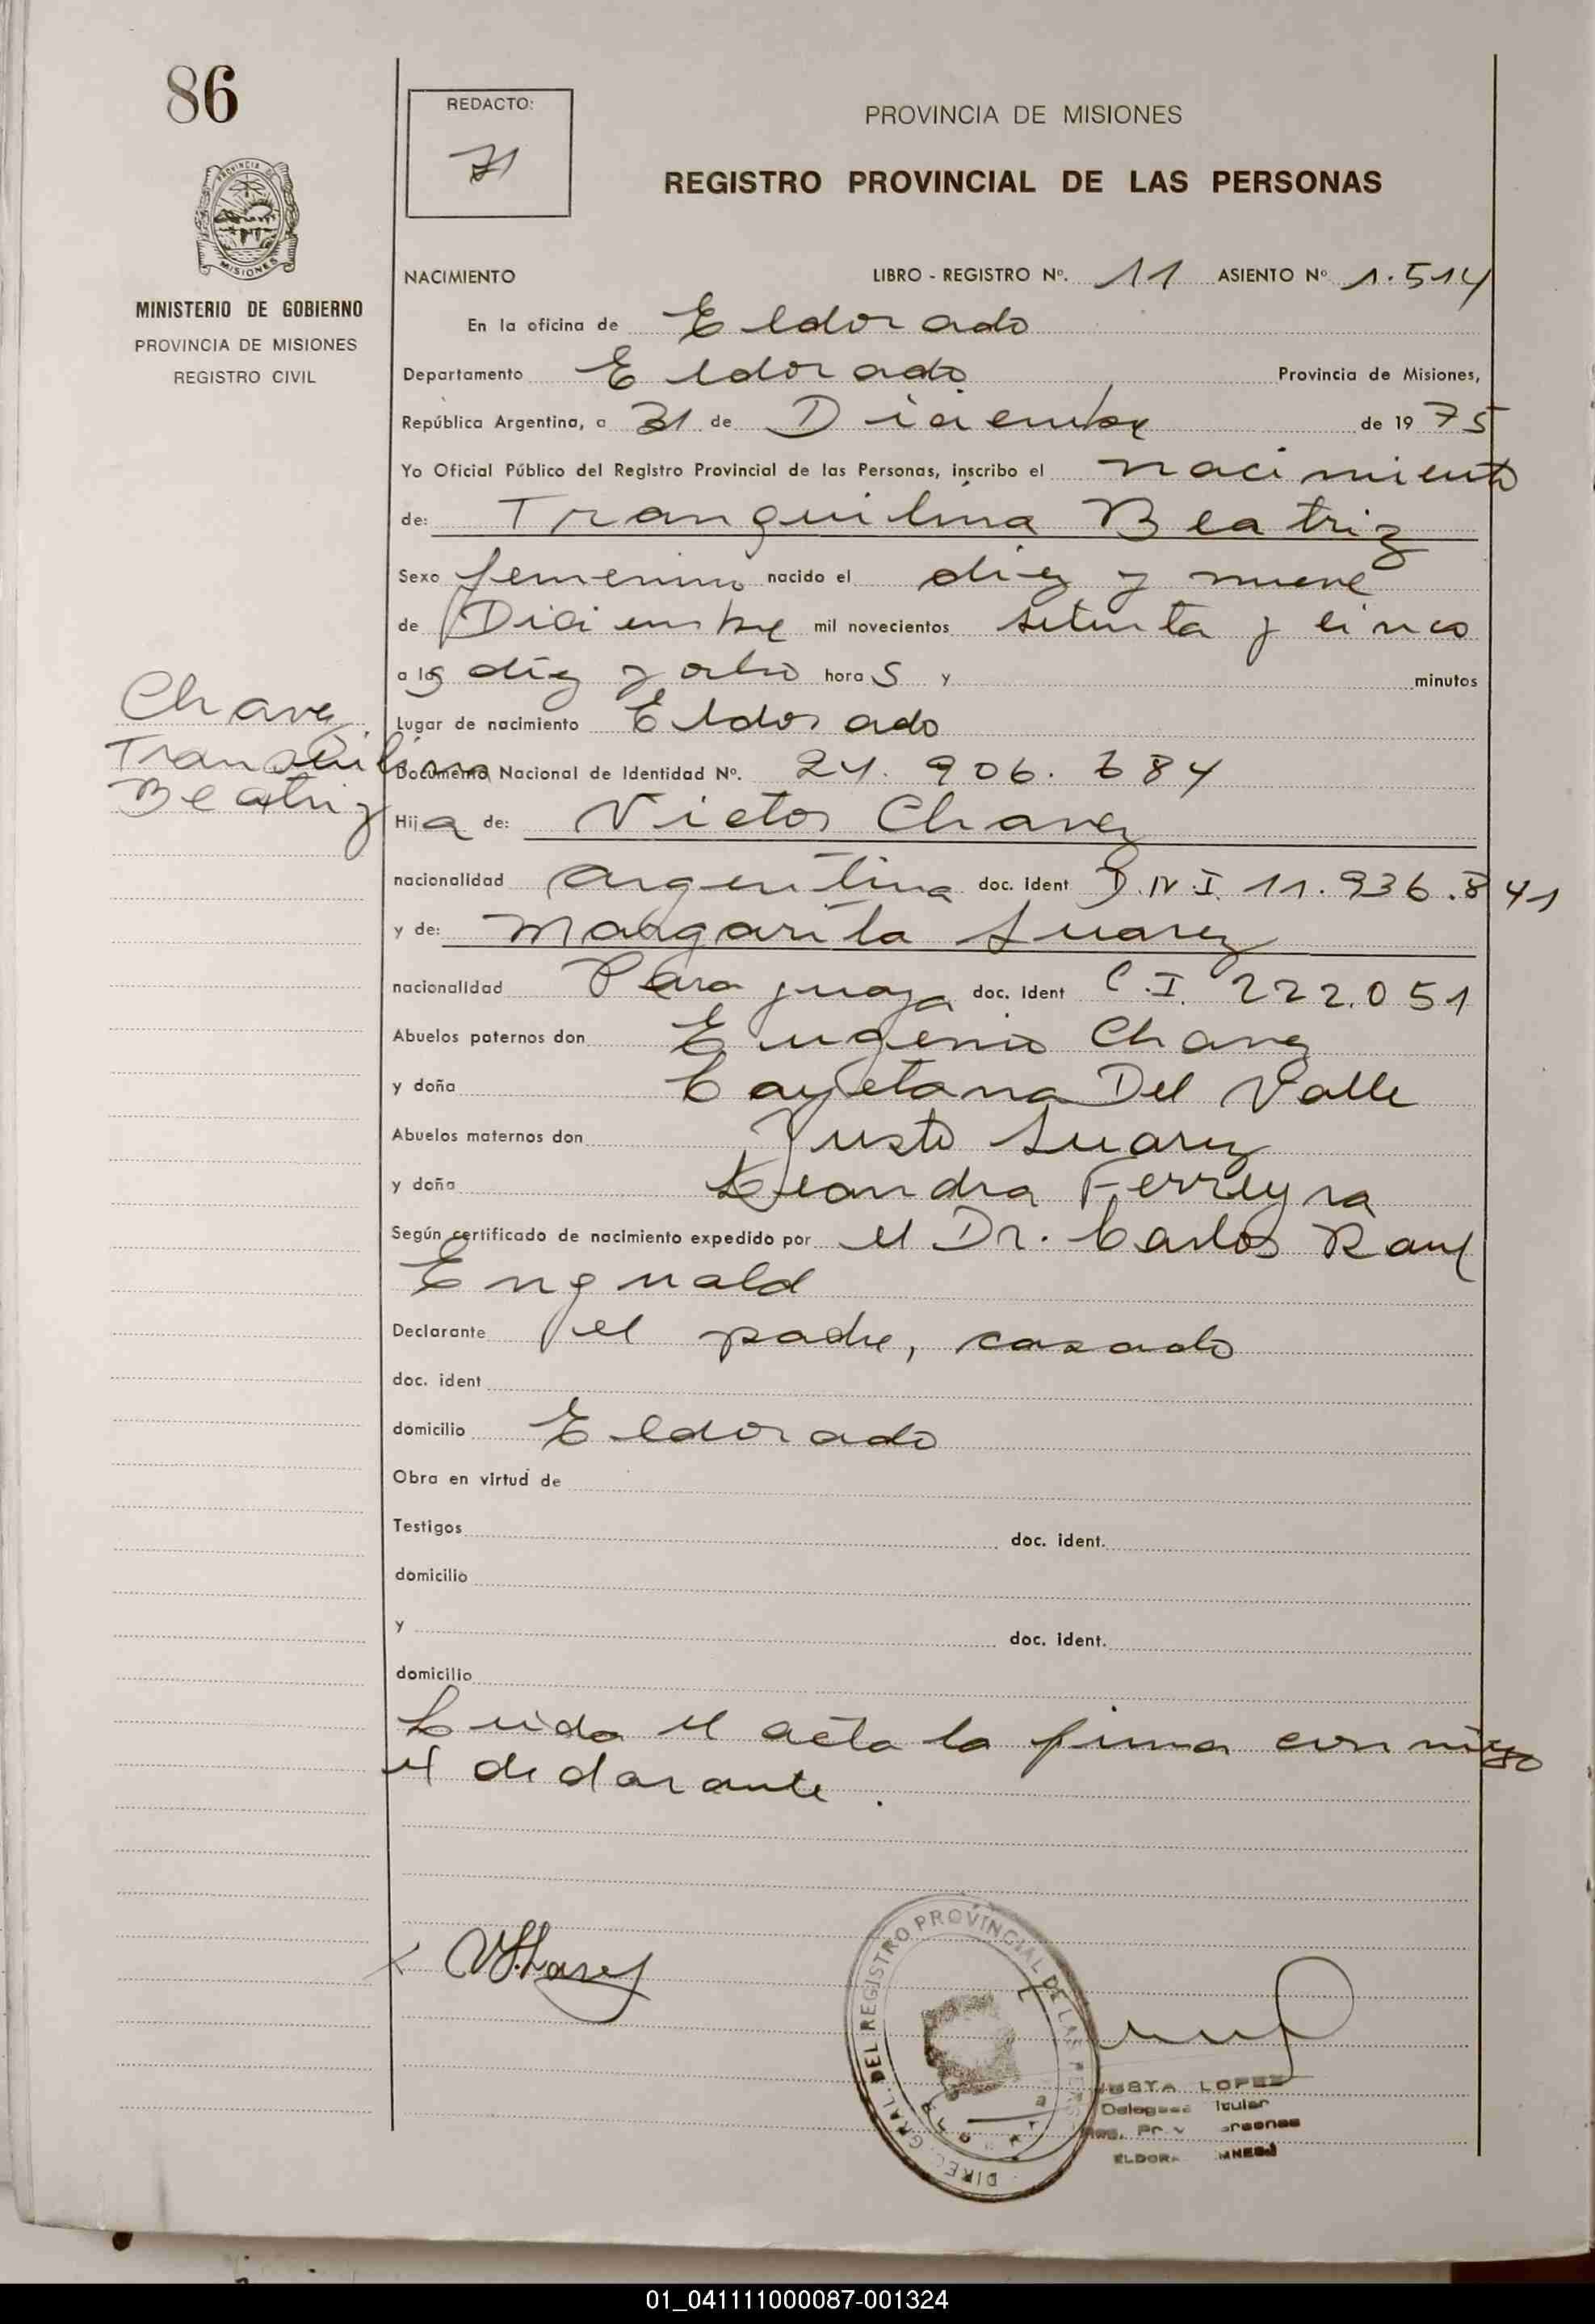 86
REDACTO:
71
PROVINCIA DE MISIONES
REGISTRO PROVINCIAL DE LAS PERSONAS
PROVINCIA DE MISIONES
MINISTERIO DE GOBIERNO
PROVINCIA DE MISIONES
REGISTRO CIVIL
NACIMIENTO LIBRO - REGISTRO Nº. 11 ASIENTO Nº 1.514
En la oficina de Eldorado
Departamento Eldorado Provincia de Misiones,
República Argentina, a 31 de Diciembre de 1975
Yo Oficial Público del Registro Provincial de las Personas, inscribo el nacimiento
de: Tranquilina Beatriz
Sexo femenino nacido el diez y nueve
de Diciembre mil novecientos setenta y cinco
a las diez y ocho horas y minutos
Chavez
Tranquilina
Beatriz
Lugar de nacimiento Eldorado
Documento Nacional de Identidad Nº. 24.906.684
Hija de: Victor Chavez
nacionalidad argentina doc. Ident D.N.I. 11.936.841
y de: Margarita Suarez
nacionalidad Paraguaya doc. Ident C.I. 222.051
Abuelos paternos don Eugenio Chavez
y doña Cayetana Del Valle
Abuelos maternos don Justo Suarez
y doña Leandra Ferreyra
Según certificado de nacimiento expedido por el Dr. Carlos Raul
Engwald
Declarante el padre, casado
doc. ident
domicilio Eldorado
Obra en virtud de
Testigos doc. ident.
domicilio
y doc. ident.
domicilio
Leida el acta la firma conmigo
el declarante.
x VChavez
DIREC. GRAL. DEL REGISTRO PROVINCIAL DE LAS PERS
JUSTA LOPEZ
Delegada Titular
ELDORA MNES
01_041111000087-001324